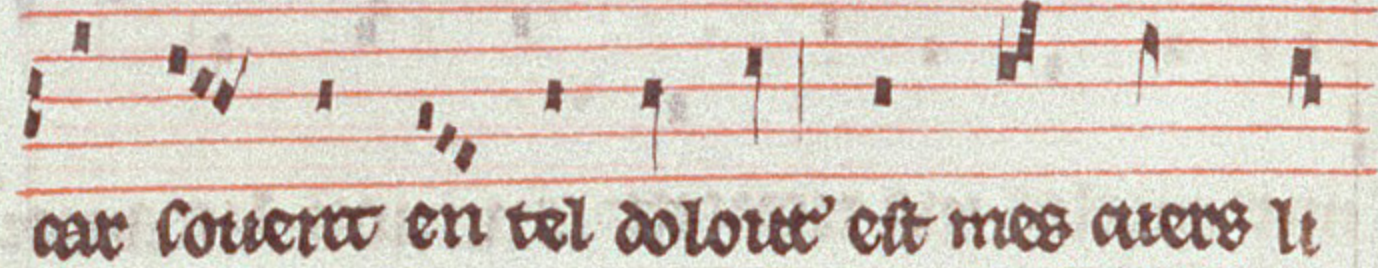 car souent en tel dolour est mes cuers li